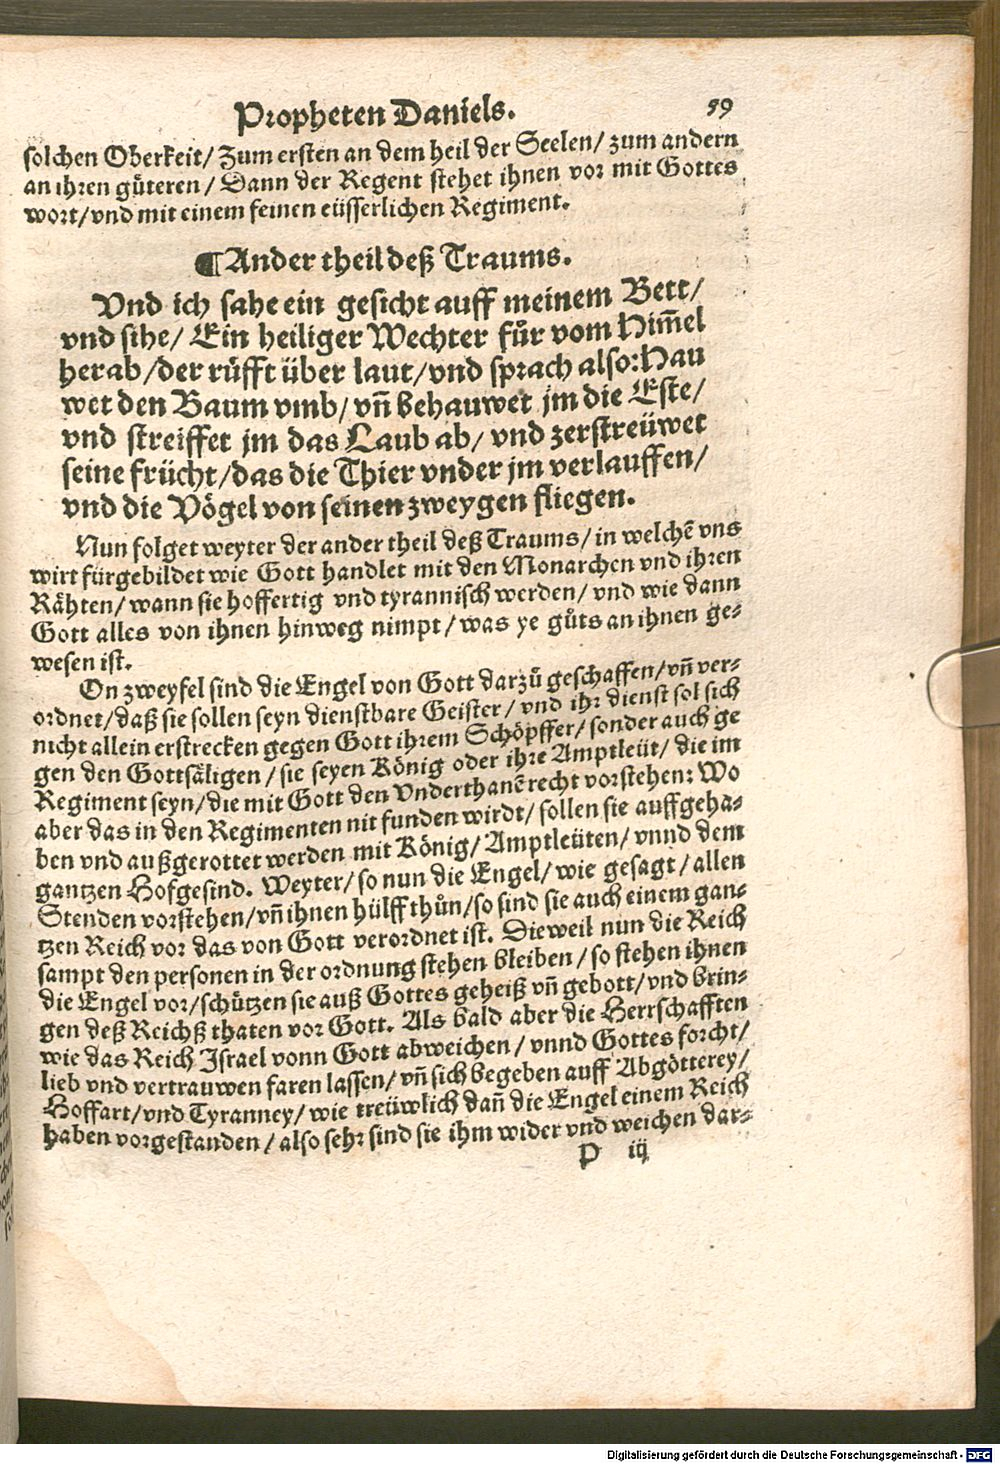 Propheten Daniels. 59
solchen Oberkeit/ Zum ersten an dem heil der Seelen/ zum andern
an ihren gůteren/ Dann der Regent stehet ihnen vor mit Gottes
wort/vnd mit einem feinen eüsserlichen Regiment.
¶Ander theil deß Traums.
Vnd ich sahe ein gesicht auff meinem Bett/
vnd sihe/ Ein heiliger Wechter fůr vom Him̃el
herab/der růfft über laut/vnd sprach also:Hau
wet den Baum vmb/ vn̄ behauwet jm die Este/
vnd streiffet jm das Laub ab/ vnd zerstreüwet
seine frücht/das die Thier vnder jm verlauffen/
vnd die Vögel von seinen zweygen fliegen.
Nun folget weyter der ander theil deß Traums/ in welchē vns
wirt fürgebildet wie Gott handlet mit den Monarchen vnd ihren
Rähten/ wann sie hoffertig vnd tyrannisch werden/ vnd wie dann
Gott alles von ihnen hinweg nimpt/ was ye gůts an ihnen ge-
wesen ist.
On zweyfel sind die Engel von Gott darzů geschaffen/vn̄ ver-
ordnet/daß sie sollen seyn dienstbare Geister/ vnd ihr dienst sol sich
nicht allein erstrecken gegen Gott ihrem Schöpffer/ sonder auch ge
gen den Gottsäligen/ sie seyen König oder ihre Amptleüt/ die im
Regiment seyn/die mit Gott den Vnderthanē recht vorstehen: Wo
aber das in den Regimenten nit funden wirdt/ sollen sie auffgeha-
ben vnd außgerottet werden mit König/ Amptleüten/ vnnd dem
gantzen Hofgesind. Weyter/ so nun die Engel/ wie gesagt/ allen
Stenden vorstehen/vn̄ ihnen hülff thůn/so sind sie auch einem gan-
tzen Reich vor das von Gott verordnet ist. Dieweil nun die Reich
sampt den personen in der ordnung stehen bleiben/ so stehen ihnen
die Engel vor/schützen sie auß Gottes geheiß vn̄ gebott/vnd brin-
gen deß Reichß thaten vor Gott. Als bald aber die Herrschafften
wie das Reich Israel vonn Gott abweichen/ vnnd Gottes forcht/
lieb vnd vertrauwen faren lassen/ vn̄ sich begeben auff Abgötterey/
Hoffart/vnd Tyranney/ wie treüwlich dan̄ die Engel einem Reich
haben vorgestanden/ also sehr sind sie ihm wider vnd weichen dar-
P iij
Digitalisierung gefördert durch die Deutsche Forschungsgemeinschaft - DFG